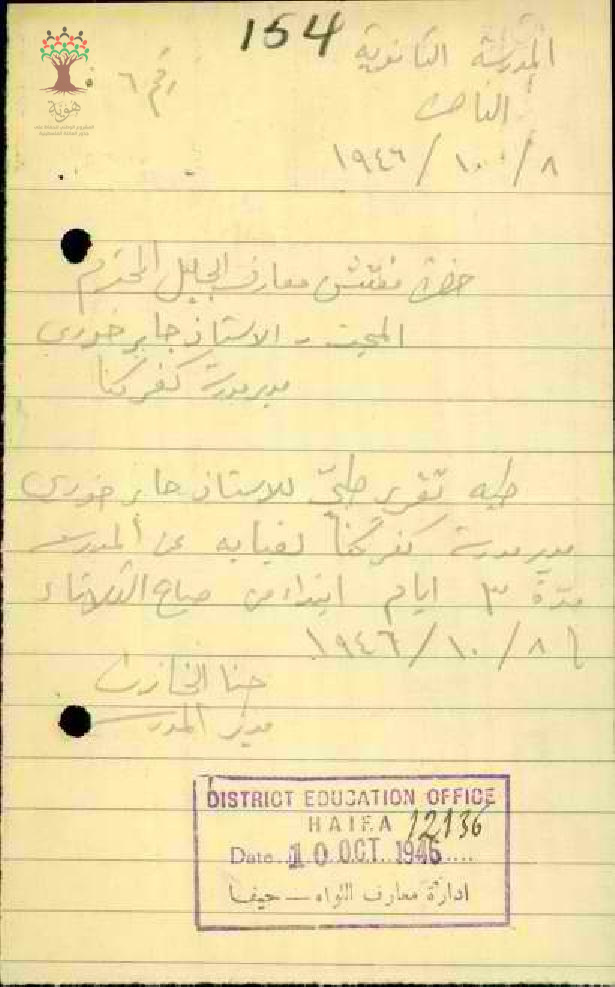 154
المدرسة الثانوية
رقم ٦
الناصرة
٨/١٠/١٩٤٦
هوية
حضرة مفتش معارف الجليل المحترم
المبحث - الاستاذ جابر خوري
مدير مدرسة كفركنا
طيه تقرير طبّي للاستاذ جابر خوري
مدير مدرسة كفركنا لغيابه عن المدرسة
مدة ٣ ايام ابتداء من صباح الثلاثاء
٨/١٠/١٩٤٦
حنا الخازن
مدير المدرسة
DISTRICT EDUCATION OFFICE
HAIFA 12136
Date 10 OCT. 1946
ادارة معارف اللواء — حيفا